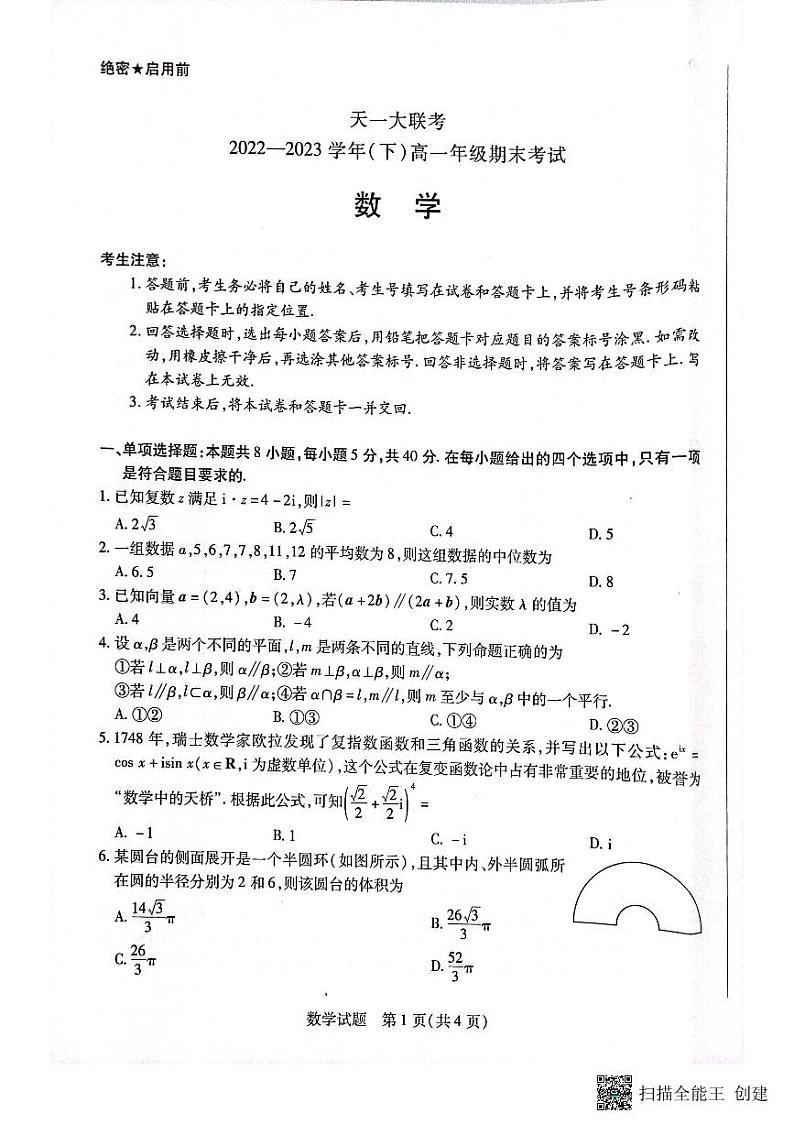 绝密★启用前
天一大联考
2022—2023 学年(下)高一年级期末考试
数 学
考生注意:
1. 答题前,考生务必将自己的姓名、考生号填写在试卷和答题卡上,并将考生号条形码粘
贴在答题卡上的指定位置.
2. 回答选择题时,选出每小题答案后,用铅笔把答题卡对应题目的答案标号涂黑.如需改
动,用橡皮擦干净后,再选涂其他答案标号.回答非选择题时,将答案写在答题卡上.写
在本试卷上无效.
3. 考试结束后,将本试卷和答题卡一并交回.
一、单项选择题:本题共 8 小题,每小题 5 分,共 40 分.在每小题给出的四个选项中,只有一项
是符合题目要求的.
1. 已知复数 z 满足 i·z=4-2i,则|z|=
A. 2√3 B. 2√5 C. 4 D. 5
2. 一组数据 a,5,6,7,7,8,11,12 的平均数为 8,则这组数据的中位数为
A. 6.5 B. 7 C. 7.5 D. 8
3. 已知向量 a=(2,4),b=(2,λ),若(a+2b)∥(2a+b),则实数 λ 的值为
A. 4 B. -4 C. 2 D. -2
4. 设 α,β 是两个不同的平面,l,m 是两条不同的直线,下列命题正确的为
①若 l⊥α,l⊥β,则 α∥β;②若 m⊥β,α⊥β,则 m∥α;
③若 l∥β,l⊂α,则 β∥α;④若 α∩β=l,m∥l,则 m 至少与 α,β 中的一个平行.
A. ①② B. ①③ C. ①④ D. ②③
5. 1748 年,瑞士数学家欧拉发现了复指数函数和三角函数的关系,并写出以下公式:e^{ix}=
cos x+isin x(x∈R,i 为虚数单位),这个公式在复变函数论中占有非常重要的地位,被誉为
“数学中的天桥”.根据此公式,可知(√2/2+√2/2 i)^4=
A. -1 B. 1 C. -i D. i
6. 某圆台的侧面展开是一个半圆环(如图所示),且其中内、外半圆弧所
在圆的半径分别为 2 和 6,则该圆台的体积为
A. 14√3/3 π B. 26√3/3 π
C. 26/3 π D. 52/3 π
数学试题 第 1 页(共 4 页)
扫描全能王 创建